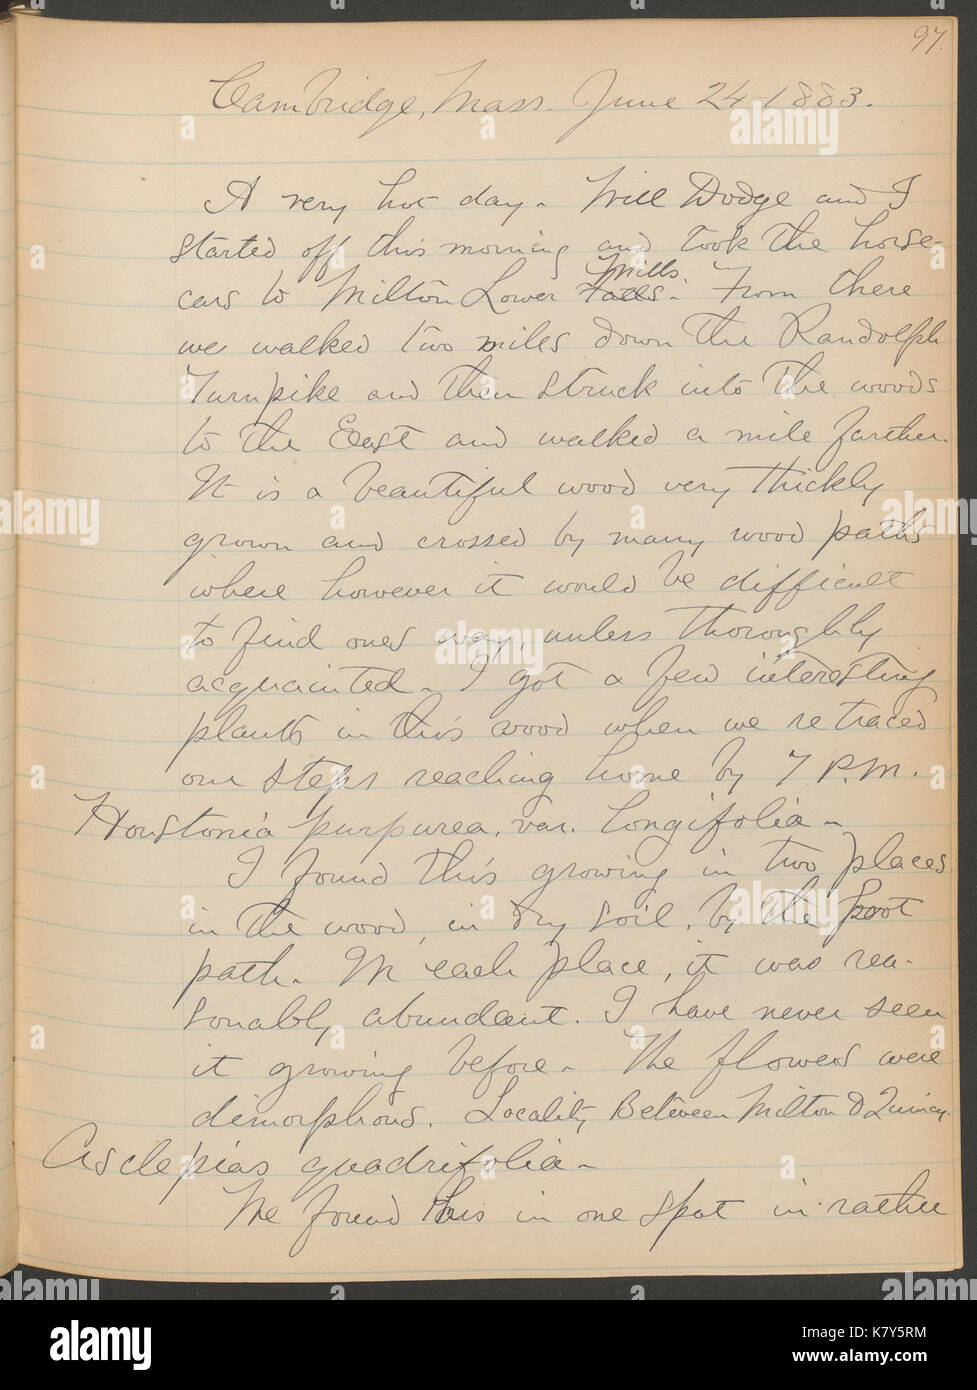 97.
Cambridge, Mass. June 24 1883.
A very hot day. Will Dodge and I
started off this morning and took the horse-
cars to Milton Lower Falls. Mills. From there
we walked two miles down the Randolph
Turnpike and then struck into the woods
to the East and walked a mile farther.
It is a beautiful wood very thickly
grown and crossed by many wood paths
where however it would be difficult
to find ones way, unless thoroughly
acquainted. I got a few interesting
plants in this wood when we retraced
our steps reaching home by 7 P.M.
Houstonia purpurea, var. longifolia -
I found this growing in two places
in the wood, in dry soil, by the foot
path. In each place, it was rea-
sonably abundant. I have never seen
it growing before. The flowers were
dimorphous. Locality, Between Milton & Quincy.
Asclepias quadrifolia -
We found this in one spot in rather
alamy
alamy stock photo
K7Y5RM
www.alamy.com